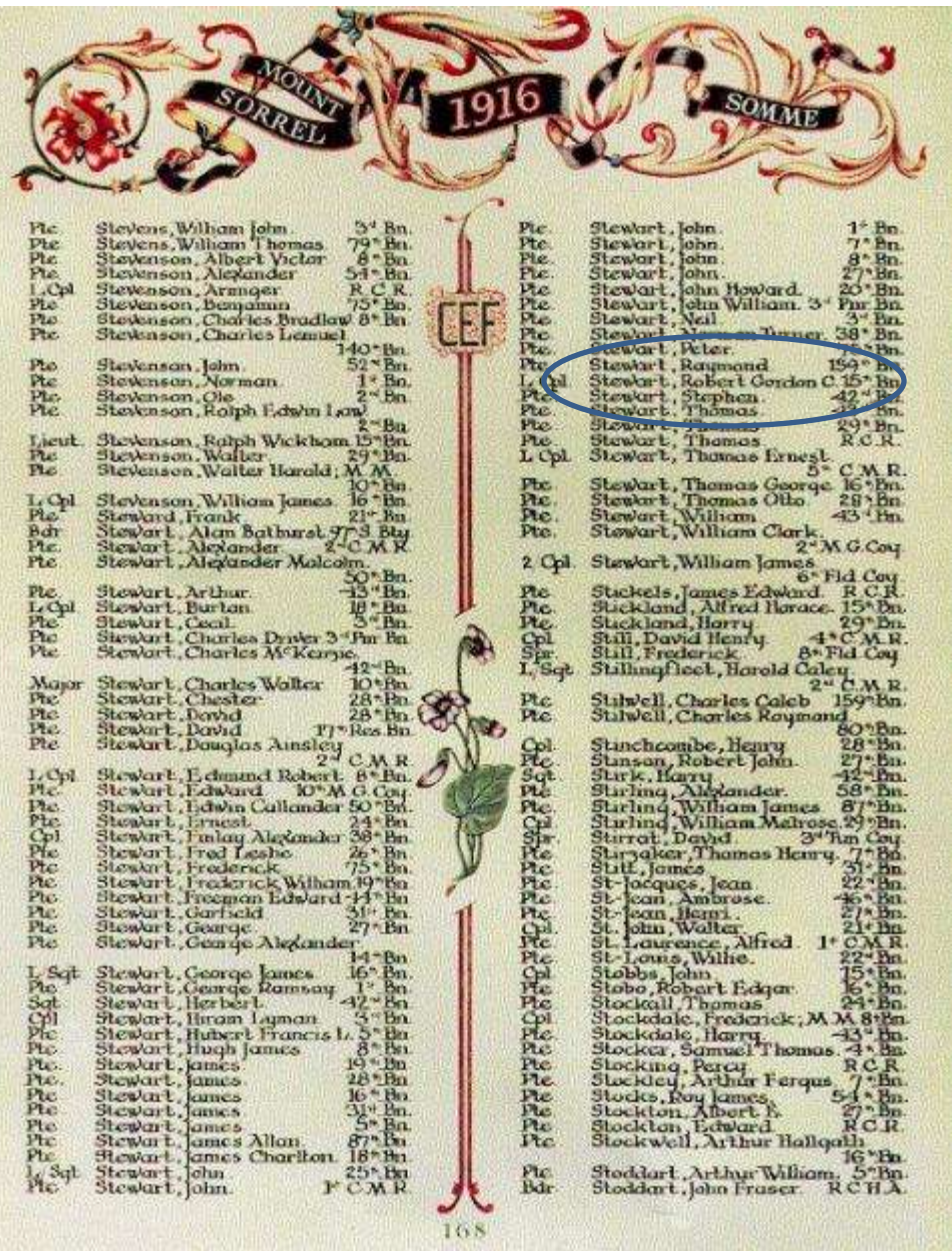 MOUNT
SORREL
1916
SOMME
Pte Stevens, William John. 3rd Bn.
Pte Stevens, William Thomas. 79th Bn.
Pte Stevenson, Albert Victor 8th Bn.
Pte. Stevenson, Alexander 54th Bn.
L.Cpl Stevenson, Arminger R.C.R.
Pte Stevenson, Benjamin 75th Bn.
Pte. Stevenson, Charles Bradlaw. 8th Bn.
Pte. Stevenson, Charles Lemuel
140th Bn.
Pte Stevenson, John. 52nd Bn.
Pte Stevenson, Norman. 1st Bn.
Pte Stevenson, Ole 2nd Bn.
Pte Stevenson, Ralph Edwin Law
2nd Bn.
Lieut. Stevenson, Ralph Wickham. 15th Bn.
Pte Stevenson, Walter. 29th Bn.
Pte Stevenson, Walter Harold; M.M.
10th Bn.
L.Cpl Stevenson, William James. 16th Bn.
Pte Steward, Frank 21st Bn.
Bdr Stewart, Alan Bathurst. 97th S. Bty
Pte. Stewart, Alexander 2nd C.M.R.
Pte Stewart, Alexander Malcolm.
50th Bn.
Pte. Stewart, Arthur. 43rd Bn.
L.Cpl Stewart, Burton. 18th Bn.
Pte Stewart, Cecil. 3rd Bn.
Pte Stewart, Charles Driver 3rd Pnr Bn
Pte Stewart, Charles McKenzie.
42nd Bn.
Major Stewart, Charles Walter 10th Bn.
Pte Stewart, Chester 28th Bn.
Pte Stewart, David 28th Bn.
Pte Stewart, David 17th Res. Bn.
Pte Stewart, Douglas Ainsley
2nd C.M.R.
L.Cpl Stewart, Edmund Robert. 8th Bn.
Pte. Stewart, Edward 10th M.G. Coy.
Pte. Stewart, Edwin Callander 50th Bn.
Pte Stewart, Ernest 24th Bn.
Cpl Stewart, Finlay Alexander 38th Bn.
Pte Stewart, Fred Leslie 26th Bn.
Pte Stewart, Frederick 75th Bn.
Pte. Stewart, Frederick William. 19th Bn.
Pte. Stewart, Freeman Edward 14th Bn
Pte Stewart, Garfield 31st Bn.
Pte Stewart, George. 27th Bn.
Pte Stewart, George Alexander
14th Bn.
L/Sgt Stewart, George James 16th Bn.
Pte Stewart, George Ramsay. 1st Bn.
Sgt Stewart, Herbert. 42nd Bn.
Cpl Stewart, Hiram Lyman 3rd Bn.
Pte Stewart, Hubert Francis L. 5th Bn.
Pte Stewart, Hugh James 8th Bn.
Pte. Stewart, James 19th Bn.
Pte. Stewart, James 28th Bn.
Pte Stewart, James 16th Bn.
Pte Stewart, James 31st Bn.
Pte Stewart, James 5th Bn.
Pte Stewart, James Allan. 87th Bn.
Pte Stewart, James Charlton. 18th Bn.
L/Sgt Stewart, John 25th Bn.
Pte Stewart, John. 1st C.M.R.
CEF
Pte. Stewart, John. 1st Bn.
Pte. Stewart, John. 7th Bn.
Pte. Stewart, John 8th Bn.
Pte. Stewart, John. 27th Bn.
Pte. Stewart, John Howard. 20th Bn.
Pte. Stewart, John William. 3rd Pnr Bn.
Pte. Stewart, Neil 3rd Bn.
Pte. Stewart, Norman Turner. 38th Bn.
Pte. Stewart, Peter. Bn.
Pte Stewart, Raymond 159th Bn
L.Cpl. Stewart, Robert Gordon C. 15th Bn
Pte Stewart, Stephen 42nd Bn.
Pte. Stewart, Thomas. Bn.
Pte. Stewart, Thomas 29th Bn.
Pte. Stewart, Thomas R.C.R.
L.Cpl. Stewart, Thomas Ernest
5th C.M.R.
Pte. Stewart, Thomas George. 16th Bn.
Pte. Stewart, Thomas Otto 28th Bn.
Pte. Stewart, William 43rd Bn.
Pte. Stewart, William Clark.
2nd M.G. Coy
2 Cpl. Stewart, William James
6th Fld Coy
Pte Stickels, James Edward. R.C.R.
Pte Stickland, Alfred Horace. 15th Bn.
Pte Stickland, Harry. 29th Bn.
Cpl Still, David Henry. 4th C.M.R.
Spr Still, Frederick. 8th Fld Coy
L/Sgt Stillingfleet, Harold Caley
2nd C.M.R.
Pte Stilwell, Charles Caleb 159th Bn.
Pte Stilwell, Charles Raymond
80th Bn.
Cpl. Stinchcombe, Henry 28th Bn.
Pte. Stinson, Robert John. 27th Bn.
Sgt. Stirk, Harry 42nd Bn.
Pte Stirling, Alexander. 58th Bn.
Pte Stirling, William James 87th Bn.
Cpl Stirling, William Melrose. 29th Bn.
Spr. Stirrat, David 3rd Tun Coy
Pte Stirzaker, Thomas Henry. 7th Bn.
Pte. Stitt, James 31st Bn.
Pte St-Jacques, Jean 22nd Bn.
Pte. St-Jean, Ambrose. 46th Bn.
Pte. St-Jean, Henri. 27th Bn.
Cpl. St. John, Walter 21st Bn.
Pte. St. Laurence, Alfred. 1st C.M.R.
Pte St-Louis, Willie. 22nd Bn.
Cpl Stobbs, John 15th Bn.
Pte Stobo, Robert Edgar. 16th Bn.
Pte Stockall, Thomas 24th Bn.
Cpl Stockdale, Frederick; M.M. 8th Bn.
Pte Stockdale, Harry. 43rd Bn.
Pte Stocker, Samuel Thomas. 4th Bn.
Pte Stocking, Percy R.C.R.
Pte Stockley, Arthur Fergus 7th Bn.
Pte Stocks, Roy James. 54th Bn.
Pte Stockton, Albert E. 27th Bn.
Pte Stockton, Edward R.C.R.
Pte Stockwell, Arthur Hallgath
16th Bn.
Pte. Stoddart, Arthur William. 5th Bn.
Bdr Stoddart, John Fraser. R.C.H.A.
168